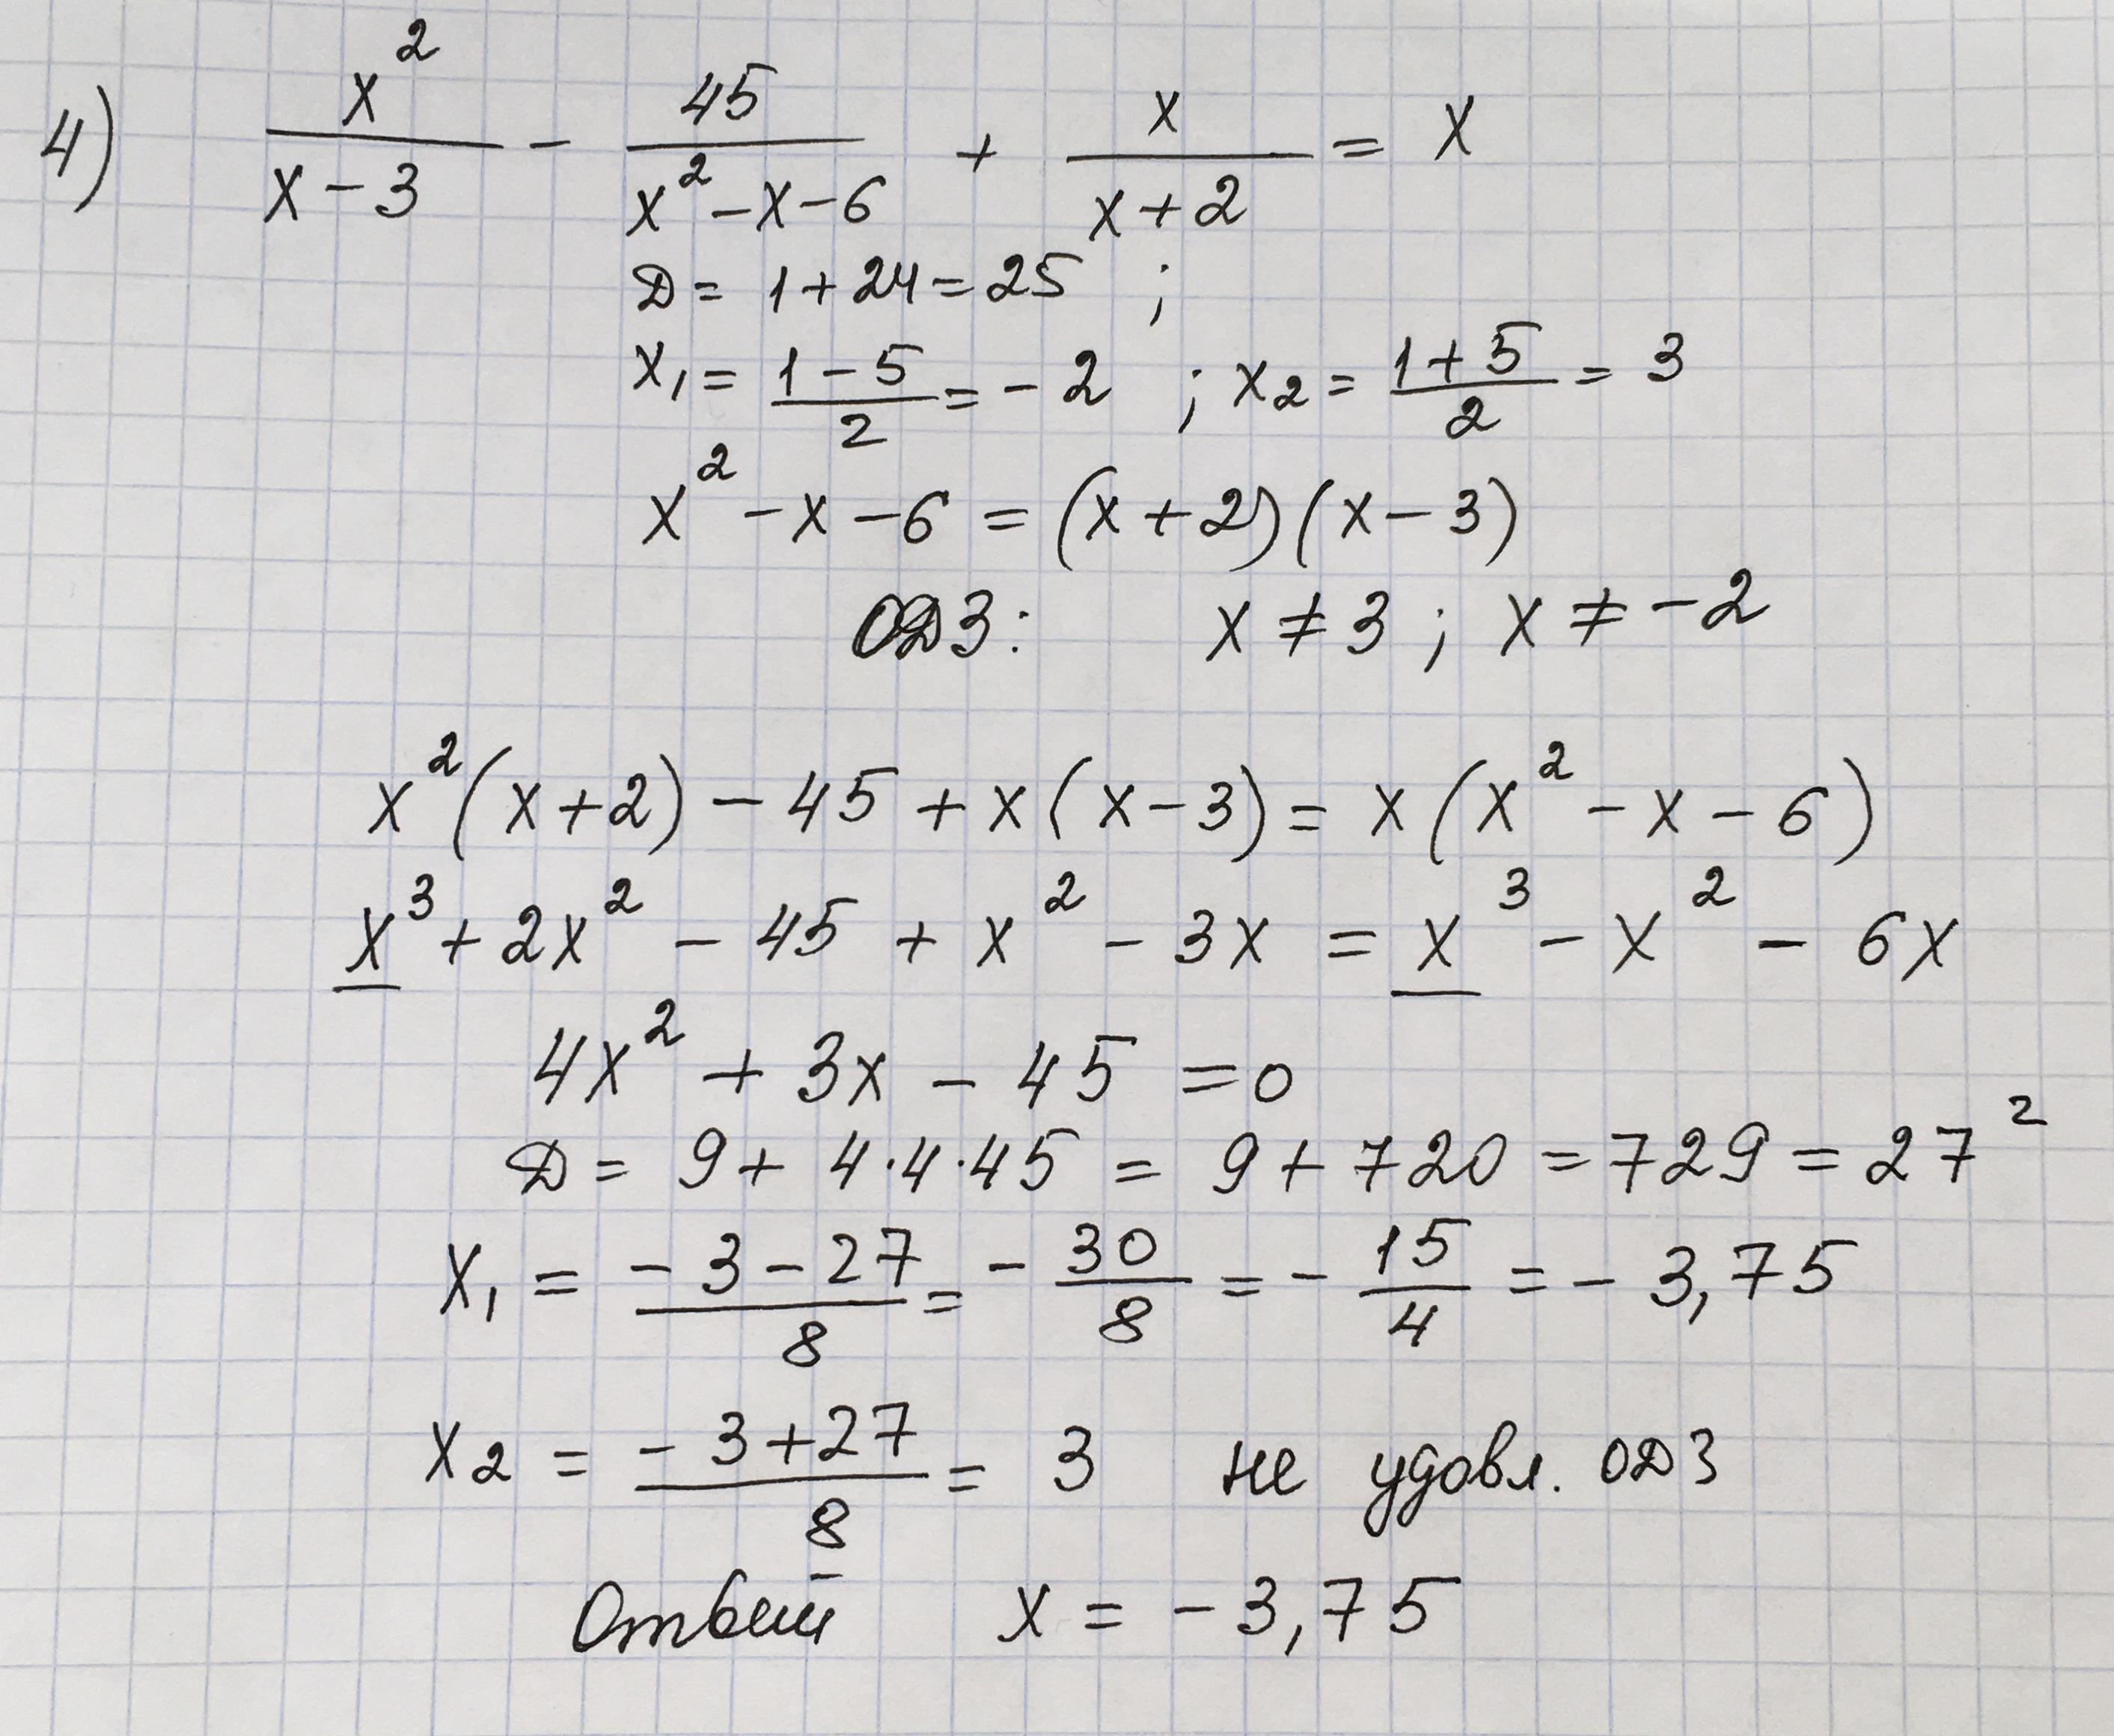 4) x²/(x-3) - 45/(x²-x-6) + x/(x+2) = x
D = 1+24=25 ;
x₁ = (1-5)/2 = -2 ; x₂ = (1+5)/2 = 3
x²-x-6 = (x+2)(x-3)
ОДЗ: x ≠ 3 ; x ≠ -2
x²(x+2) - 45 + x(x-3) = x(x²-x-6)
x³ + 2x² - 45 + x² - 3x = x³ - x² - 6x
4x² + 3x - 45 = 0
D = 9 + 4·4·45 = 9 + 720 = 729 = 27²
x₁ = (-3-27)/8 = -30/8 = -15/4 = -3,75
x₂ = (-3+27)/8 = 3 не удовл. ОДЗ
Ответ x = -3,75